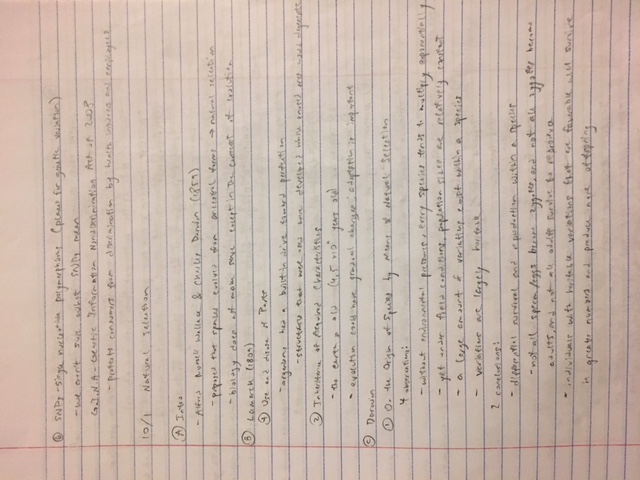 ⑥ SNPs - Single nucleotide polymorphisms (present for genetic variation)
- we aren't sure what SNPs mean
G.I.N.A - Genetic Information Nondiscrimination Act of 2003
- protects consumers from discrimination by health insurers and employers
10/1 Natural Selection
Ⓐ Intro
- Alfred Russell Wallace & Charles Darwin (1859)
- proposed that species evolved from ancestral forms → natural selection
- biology does not make sense except in the context of evolution
Ⓑ Lamarck (1809)
① Use and disuse of Parts
- organisms had a built in drive toward perfection
- structures that were used more developed while unused ones would degenerate
② Inheritance of Acquired Characteristics
- the earth is old (4.5 x 10⁹ years old)
- evolution could have gradual changes; adaptation is important
Ⓒ Darwin
① On the Origin of Species by Means of Natural Selection
4 observations:
- without environmental pressures, every species tends to multiply exponentially
- yet under field conditions, population sizes are relatively constant
- a large amount of variations exist within a species
- variations are largely heritable
2 conclusions:
- differential survival and reproduction within a species
- not all sperm/eggs become zygotes, and not all zygotes become
adults, and not all adults survive to reproduce
- individuals with heritable variations that are favorable will survive
in greater numbers and produce more offspring